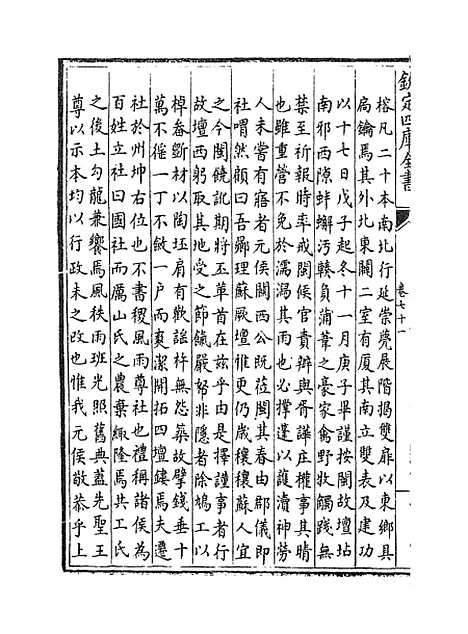 欽定四庫全書
卷七十一
榕凡二十本南北行延崇甍展階揭雙扉以東鄉具
扃鑰焉其外北東闢二室有厦其南立雙表及建功
以十七日戊子起冬十一月庚子畢謹按閩故壇坫
南邪西隙蚌蠏汚轃負蒲葦之豪家禽野牧觸踐無
禁至祈報時率戒閩候官責辨與胥譁庄權事其晴
也雖重營不免於濡濁其雨也必撑蓬以護瀆神勞
人未嘗有寤者元侯闗西公既莅閩其春由郡儀即
社喟然顧曰吾鄊理蘇厥壇惟更仍歲穰穰蘇人宜
之今閩饒訛期將丕革首在兹乎由是擇謹事者行
故壇西躬取其地受之節餼嚴帑非隱者除鳩工以
棹畚斵材以陶坯肩有歡謡杵無怨築故擘錢垂十
萬不徭一丁不斂一户而爽潔開拓四壇鏤焉夫遷
社於州坤右位也不書稷風雨尊社也禮稱諸侯為
百姓立社曰國社而厲山氏之農棄緜隆焉共工氏
之後土勾龍兼饗焉風秩雨班光照舊典蓋先聖王
尊以示本均以行政未之改也惟我元侯敬恭乎上